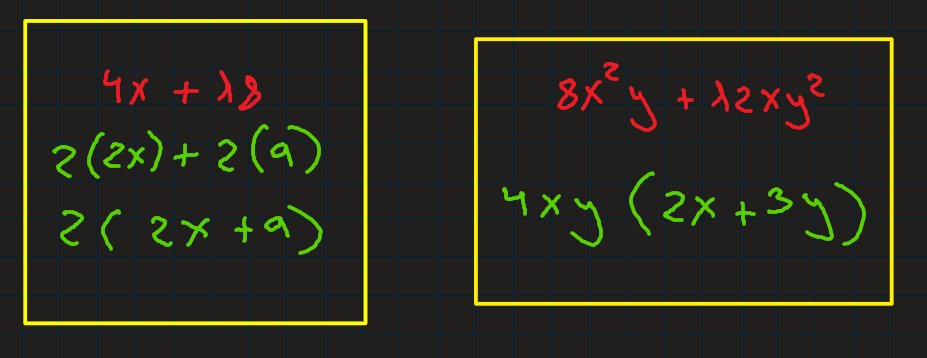 4x + 18
2(2x) + 2(9)
2(2x + 9)
8x²y + 12xy²
4xy(2x + 3y)